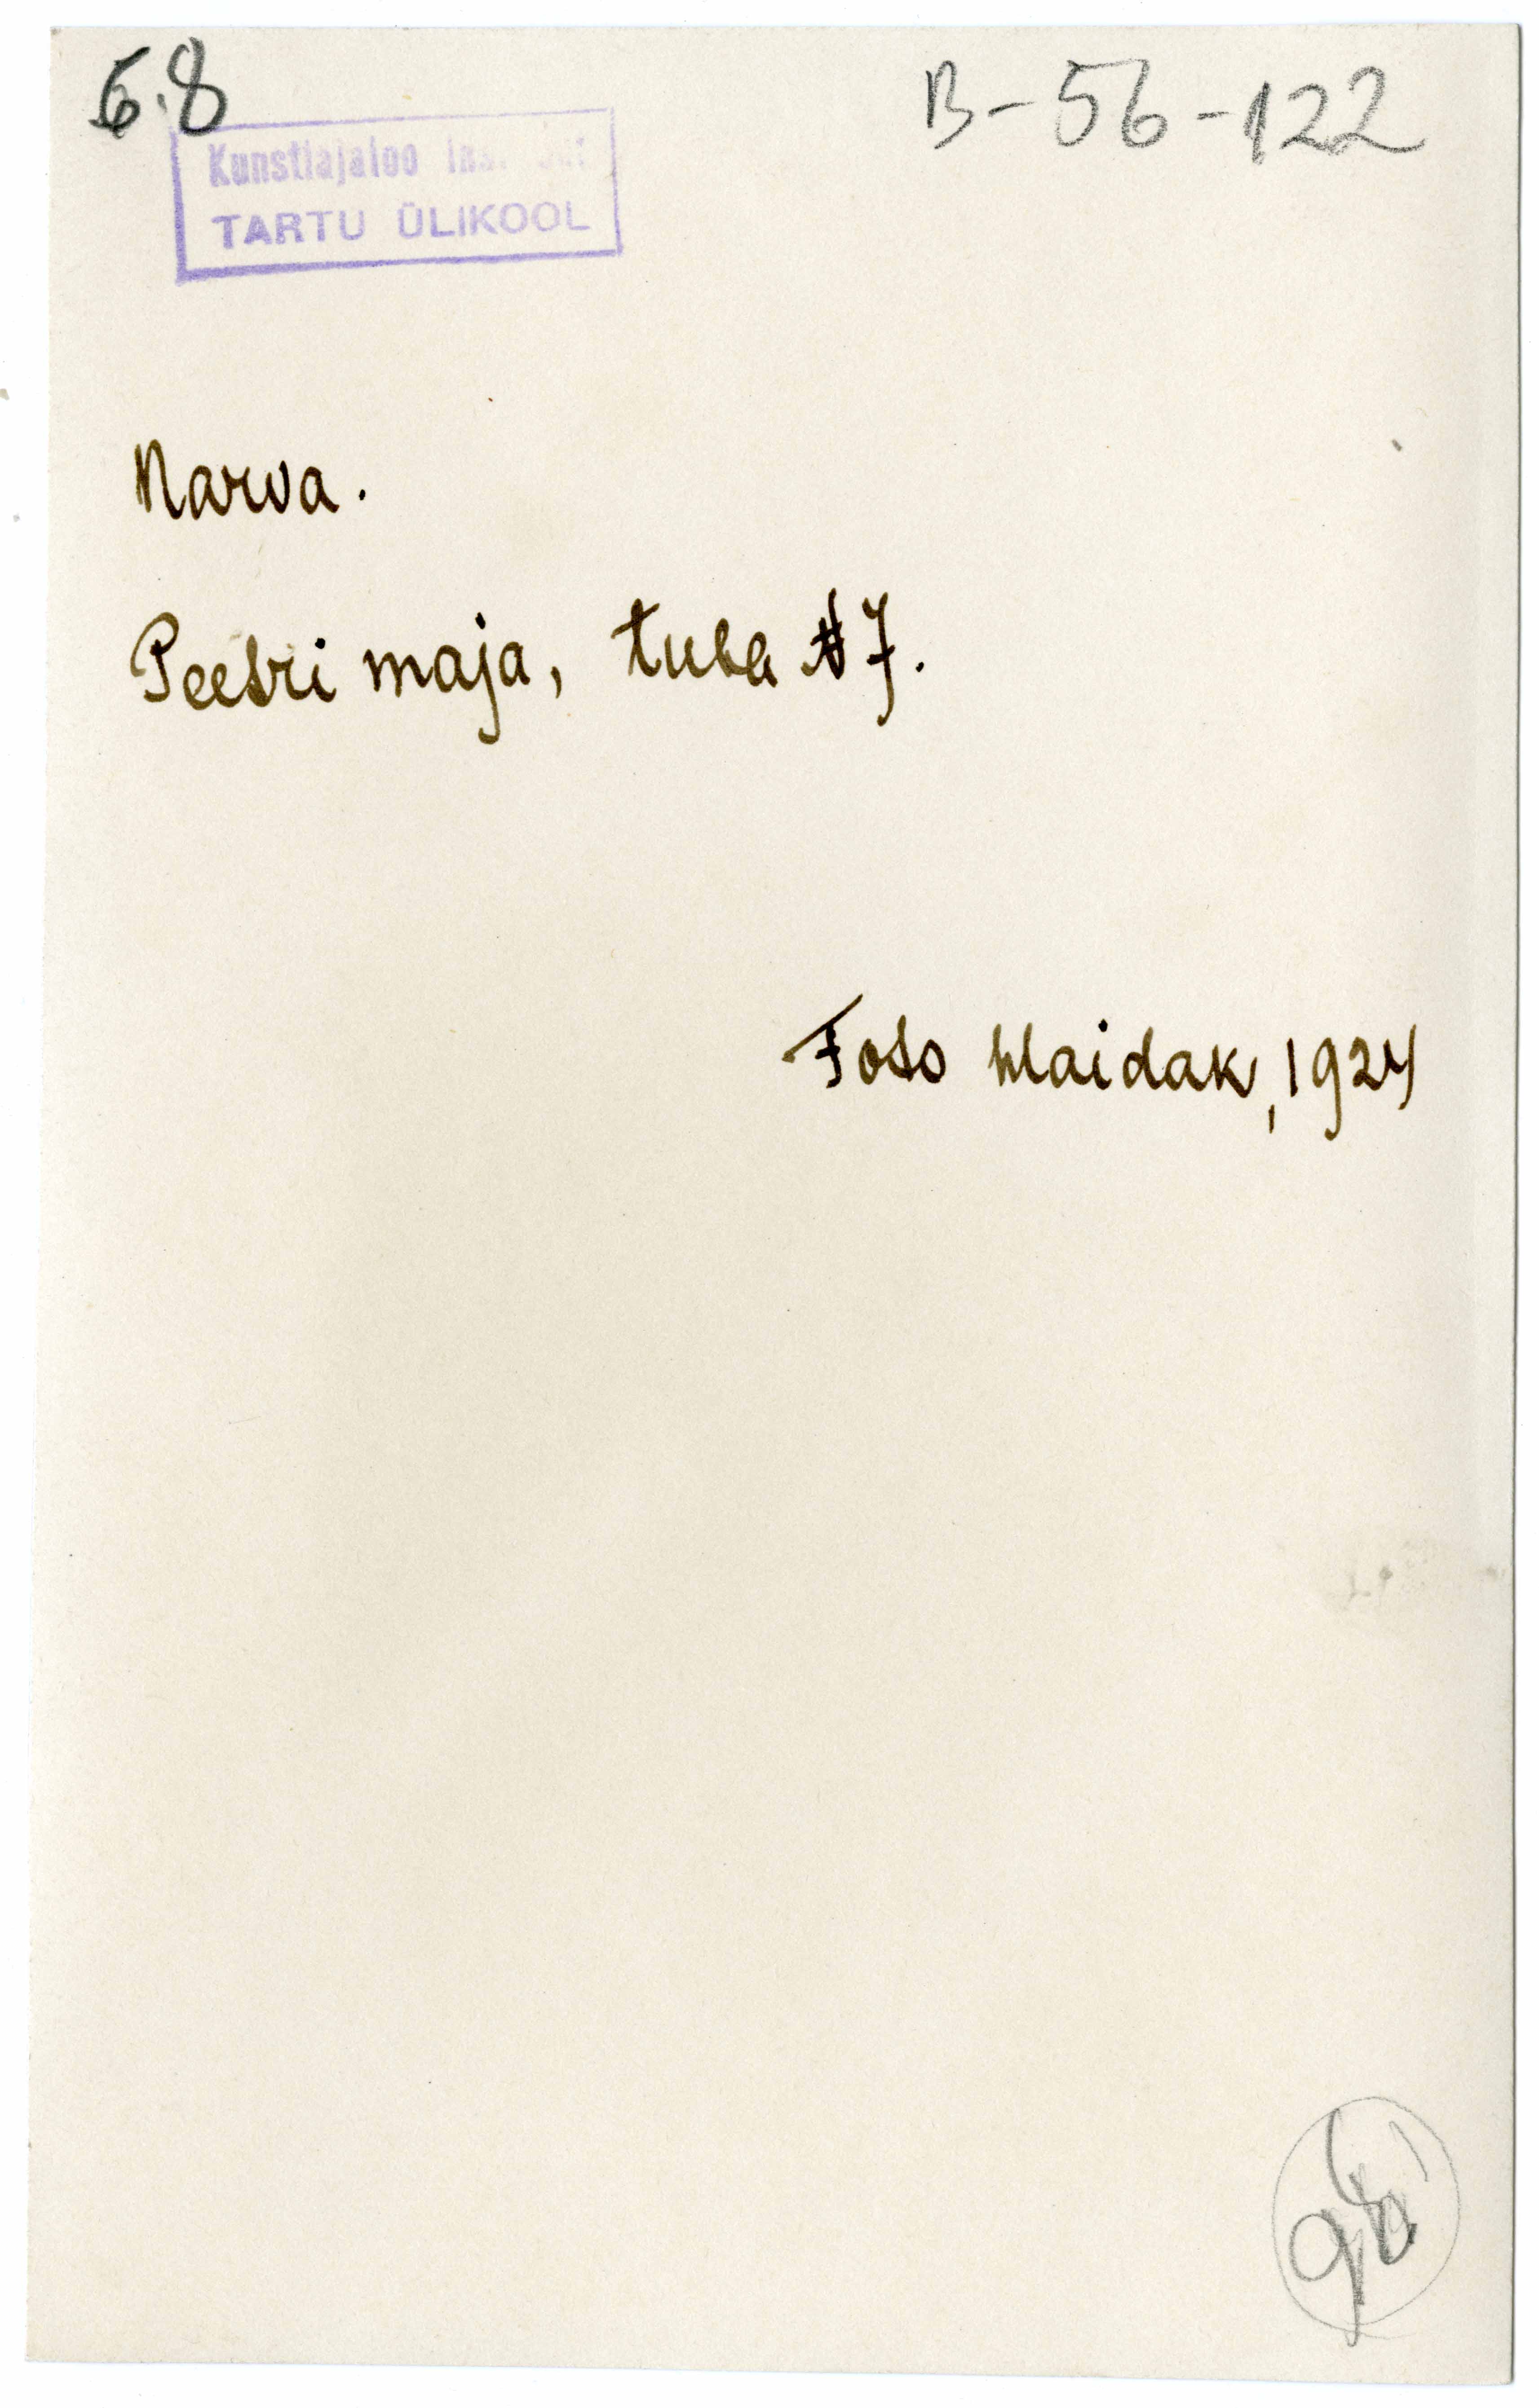 6.8
B-56-122
Kunstiajaloo
TARTU ÜLIKOOL
Narva.
Peetri maja, tuba #7.
Foto Maidak, 1924